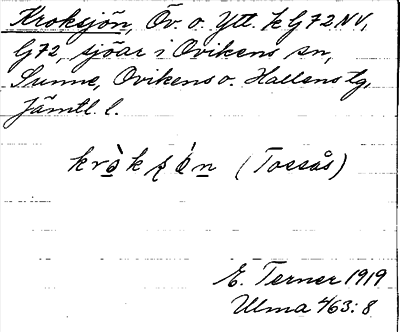 Kroksjön, Öv. o. Ytt. k G72NV,
G72, sjöar i Ovikens sn,
Sunne, Ovikens o. Hallens tg,
Jämtl. l.
kròkʂǿn (Tossås)
E. Terner 1919
Ulma 463:8